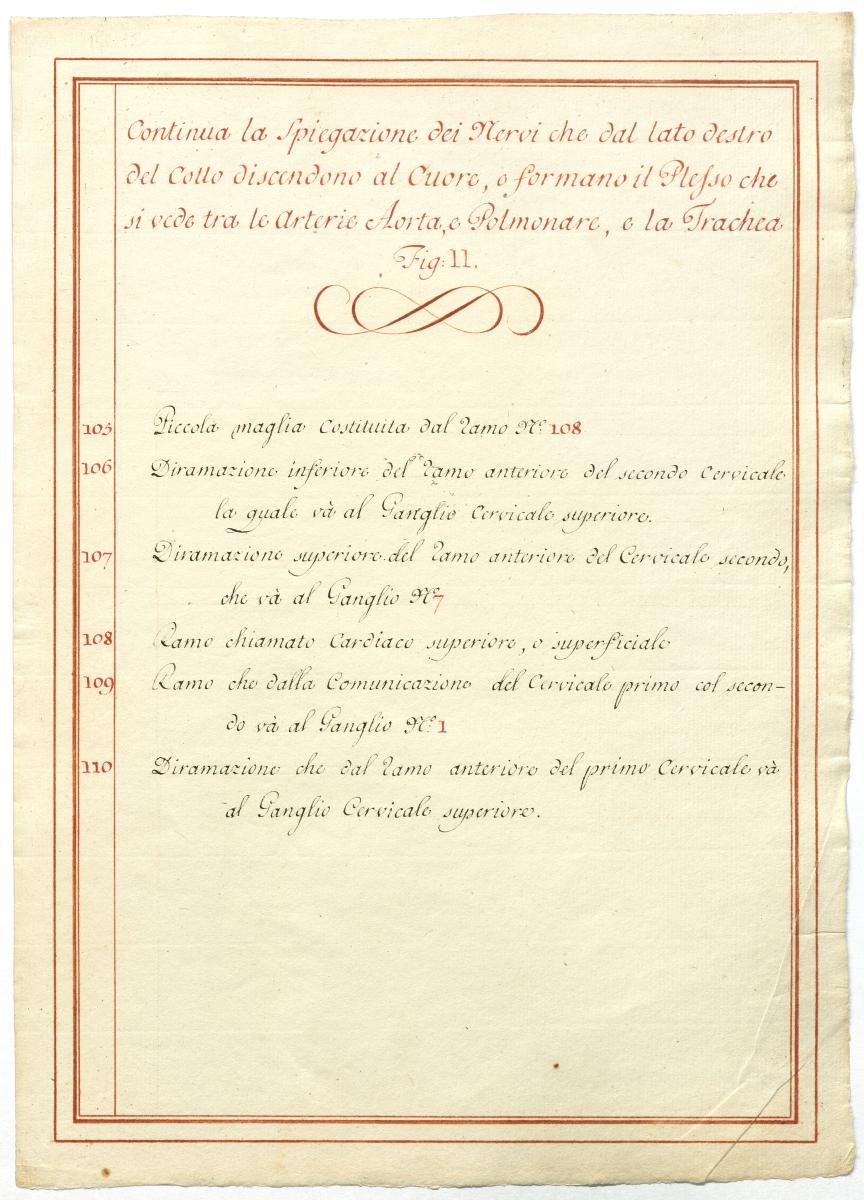 Continua la Spiegazione dei Nervi che dal lato destro
del Collo discendono al Cuore, e formano il Plesso che
si vede tra le Arterie Aorta, e Polmonare, e la Trachea
Fig: 11.
105 Piccola maglia Costituita dal Ramo N.º 108
106 Diramazione inferiore del Ramo anteriore del secondo Cervicale
la quale và al Ganglio Cervicale superiore.
107 Diramazione superiore del Ramo anteriore del Cervicale secondo,
che và al Ganglio N.º 7
108 Ramo chiamato Cardiaco superiore, o superficiale
109 Ramo che dalla Comunicazione del Cervicale primo col secon-
do và al Ganglio N.º 1
110 Diramazione che dal Ramo anteriore del primo Cervicale và
al Ganglio Cervicale superiore.